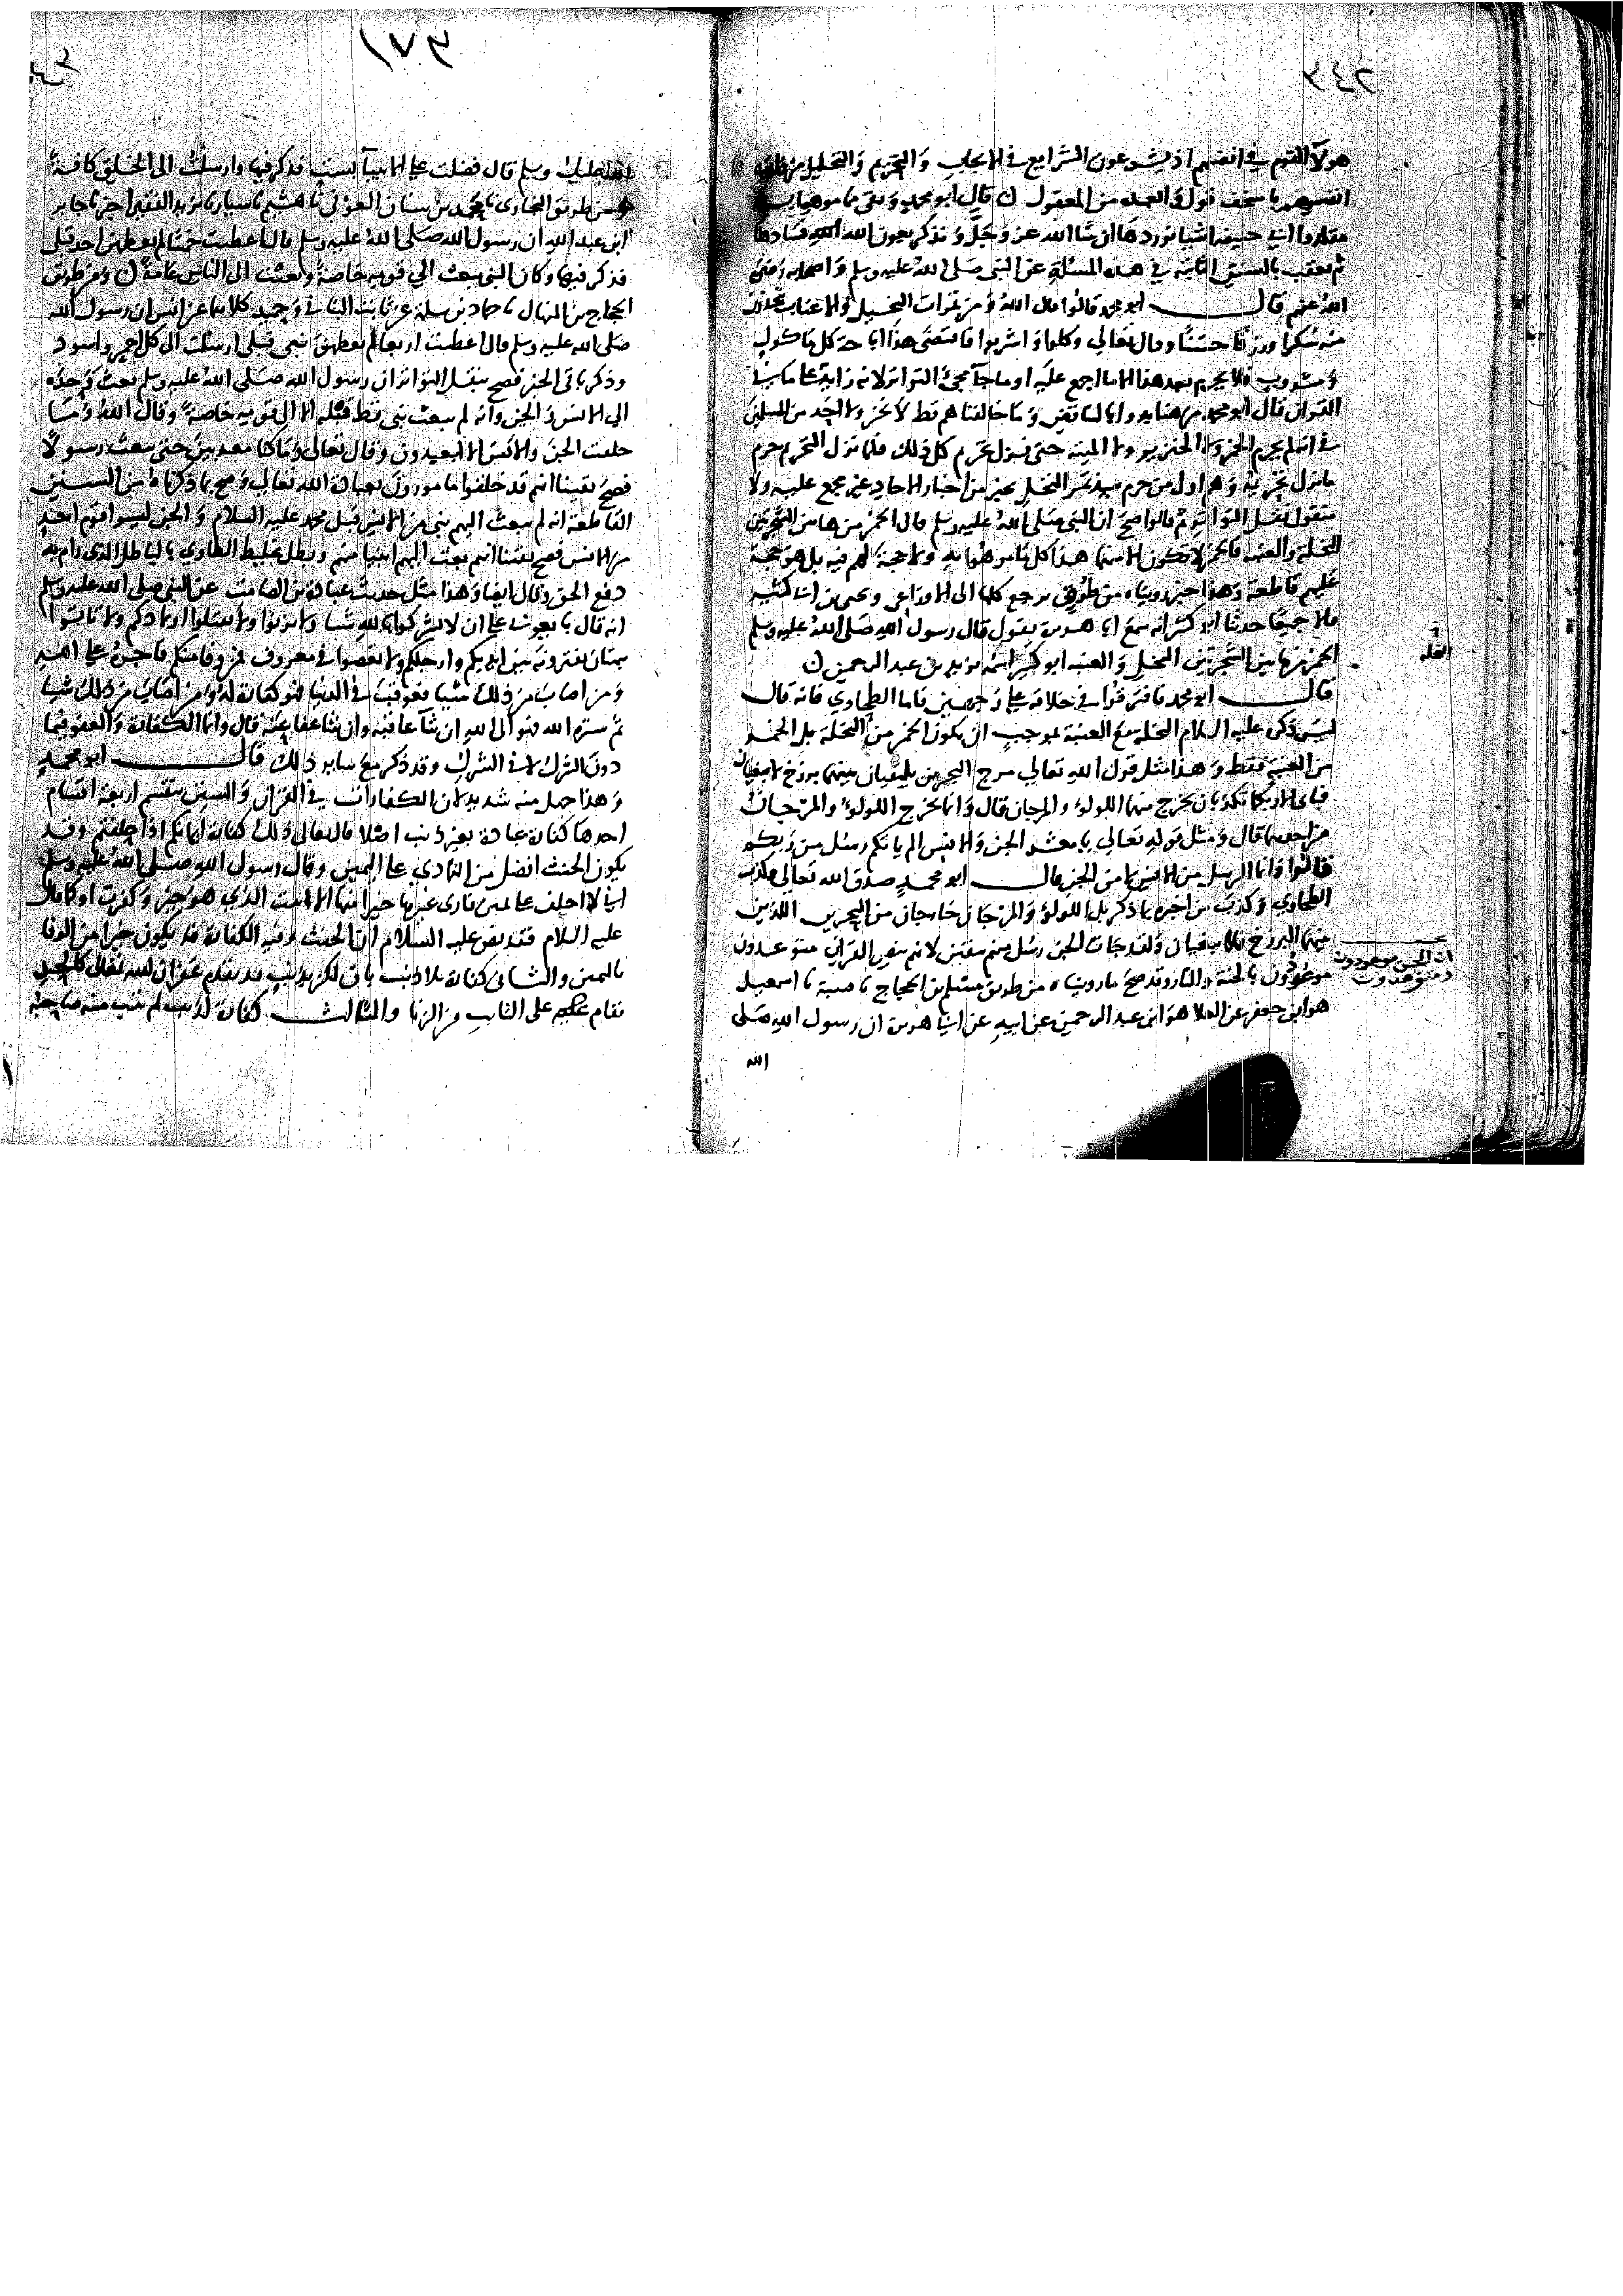 ٣٤٢
هولا القوم في انفسهم اذ يشرعون الشرايع في الايجاب والتحريم والتحليل من
انفسهم بأسخف قول وابعده من المعقول قال ابو محمد وبقي ما موهوا به
مقلدوا ابي حنيفة اشيا نوردها ان شا الله عز وجل ونذكر بعون الله فسادها
ثم نعقب بالسنن الثابتة في هذه المسئلة عن النبي صلى الله عليه وسلم واصحابه رضي
الله عنهم قال ابو محمد قالوا قال الله ومن ثمرات النخيل والاعناب تتخذون
منه سكرا ورزقا حسنا وقال تعالى وكلوا واشربوا فاقتضى هذا اباحة كل ماكول
ومشروب فلا يحرم بعد هذا الا ما اجمع عليه او ما جآ مجيء التواتر لانه زايد على ما في
القران قال ابو محمد من هنا بدوا بالتناقض وما خالفناهم قط لا نحن ولا احد من المسلمين
في انه لم يحرم الخمر ولا الخنزير ولا الميتة حتى نزل تحريم كل ذلك فلما نزل التحريم حرم
ما نزل تحريمه وهم اول من حرم نبيذ ثمر النخل بخبر من اخبار الاحاد غير مجمع عليه ولا
منقول نقل التواتر ثم قالوا صح ان النبي صلى الله عليه وسلم قال الخمر من هاتين الشجرتين
النخلة والعنبه فالخمر لا تكون الا منهما هذا كل ما موهوا به ولا حجة لهم فيه بل هو حجة
عليهم قاطعة وهذا خبر رويناه من طرق ترجع كلها الى الاوزاعي ويحيى بن ابي كثير
كلاهما حدثنا ابو كثير انه سمع ابا هريرة يقول قال رسول الله صلى الله عليه وسلم
الخمر من هاتين الشجرتين النخل والعنبه ابو كثير اسمه يزيد بن عبد الرحمن
قال ابو محمد فافترقوا في خلافه على وجهين فاما الطحاوي فانه قال
ليس ذكره عليه السلام النخلة مع العنبة بموجب ان يكون الخمر من النخلة بل الخمر
من العنب فقط وهذا مثل قول الله تعالى مرج البحرين يلتقيان بينهما برزخ لا يبغيان
فباي الا ربكما تكذبان يخرج منهما اللولو والمرجان قال وانما يخرج اللولو والمرجان
من احدهما قال ومثل قوله تعالى يا معشر الجن والانس الم ياتكم رسل منكم
قالوا وانما الرسل من الانس لا من الجن قال ابو محمد صدق الله تعالى وكذب
الطحاوي وكذب من اخبره بما ذكر بل اللولو والمرجان خارجان من البحرين اللذين
بينهما البرزخ فلا يبغيان ولقد جات الجن رسل منهم بيقين لانهم بنص القران متوعدون
ان الجن موعودون
ومتوعدون
موعودون بالجنة والنار وقد صح ما رويناه من طريق مسلم بن الحجاج نا قتيبة نا اسمعيل
هو ابن جعفر عن العلا هو ابن عبد الرحمن عن ابيه عن ابي هريرة ان رسول الله صلى
الله
١٧٣
الله عليه وسلم قال فضلت على الانبيآ بست فذكر فيها وارسلت الى الخلق كافة
ومن طريق البخاري نا محمد بن سنان العوقي نا هشيم نا سيار نا يزيد الفقير اخبرنا جابر
ابن عبد الله ان رسول الله صلى الله عليه وسلم قال اعطيت خمسا لم يعطهن احد قبلي
فذكر فيها وكان النبي يبعث الى قومه خاصة وبعثت الى الناس عامة ومن طريق
الحجاج بن المنهال نا حماد بن سلمة عن ثابت البناني وحميد كلاهما عن انس ان رسول الله
صلى الله عليه وسلم قال اعطيت اربعا لم يعطهن نبي قبلي ارسلت الى كل احمر واسود
وذكر باقي الخبر فصح بنقل التواتر ان رسول الله صلى الله عليه وسلم بعث وحده
الى الانس والجن وانه لم يبعث نبي قط قبله الا الى قومه خاصة وقال الله وما
خلقت الجن والانس الا ليعبدون وقال تعالى وما كنا معذبين حتى نبعث رسولا
فصح يقينا انهم قد خلقوا مامورون بعبادة الله تعالى وصح بما ذكرنا من السنن
القاطعة انه لم يبعث اليهم نبي من الانس قبل محمد عليه السلام والجن ليسوا قوم احد
من الانس فصح يقينا انهم بعث اليهم انبيا منهم وبطل تخليط الطحاوي بالباطل الذي رام به
دفع الحق وقال ايضا وهذا مثل حديث عبادة بن الصامت عن النبي صلى الله عليه وسلم
انه قال بايعوني على ان لا تشركوا بالله شيا ولا تزنوا ولا تقتلوا اولادكم ولا تاتوا
ببهتان تفترونه بين ايديكم وارجلكم ولا تعصوا في معروف فمن وفا منكم فاجره على الله
ومن اصاب من ذلك شيا فعوقب في الدنيا فهو كفارة له ومن اصاب من ذلك شيا
ثم ستره الله فهو الى الله ان شآ عاقبه وان شا عفا عنه قال وانما الكفارة والعفو فيما
دون الشرك لا في الشرك وقد ذكر مع ساير ذلك قال ابو محمد
وهذا جهل منه شديد لان الكفارات في القران والسنن تنقسم اربعة اقسام
احدها كفارة عبادة بغير ذنب اصلا قال تعالى ذلك كفارة ايمانكم اذا حلفتم وقد
يكون الحنث افضل من التمادي على اليمين وقال رسول الله صلى الله عليه وسلم
اني لا احلف على يمين فارى غيرها خيرا منها الا اتيت الذي هو خير وكفرت او كما قال
عليه السلام فقد نص عليه السلام ان الحنث وفيه الكفارة قد يكون خيرا من الوفا
باليمين والثاني كفارة بلا ذنب باق لكن لذنب قد تقدم غفران الله تعالى كالحد
تقام على التايب من الزنا والثالث كفارة لذنب لم يتب منه صاحبه